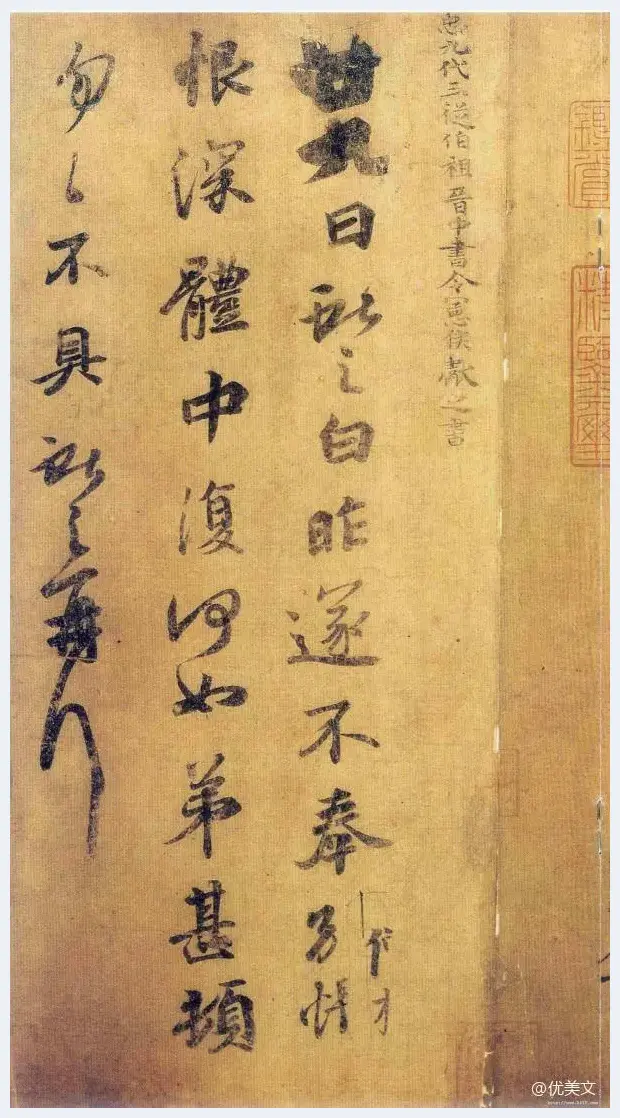 九代三從伯祖晉中書令憲侯獻之書
廿九日獻之白昨遂不奉別悵
恨深體中復何如弟甚頓
勿々不具獻之再拜
@优美文